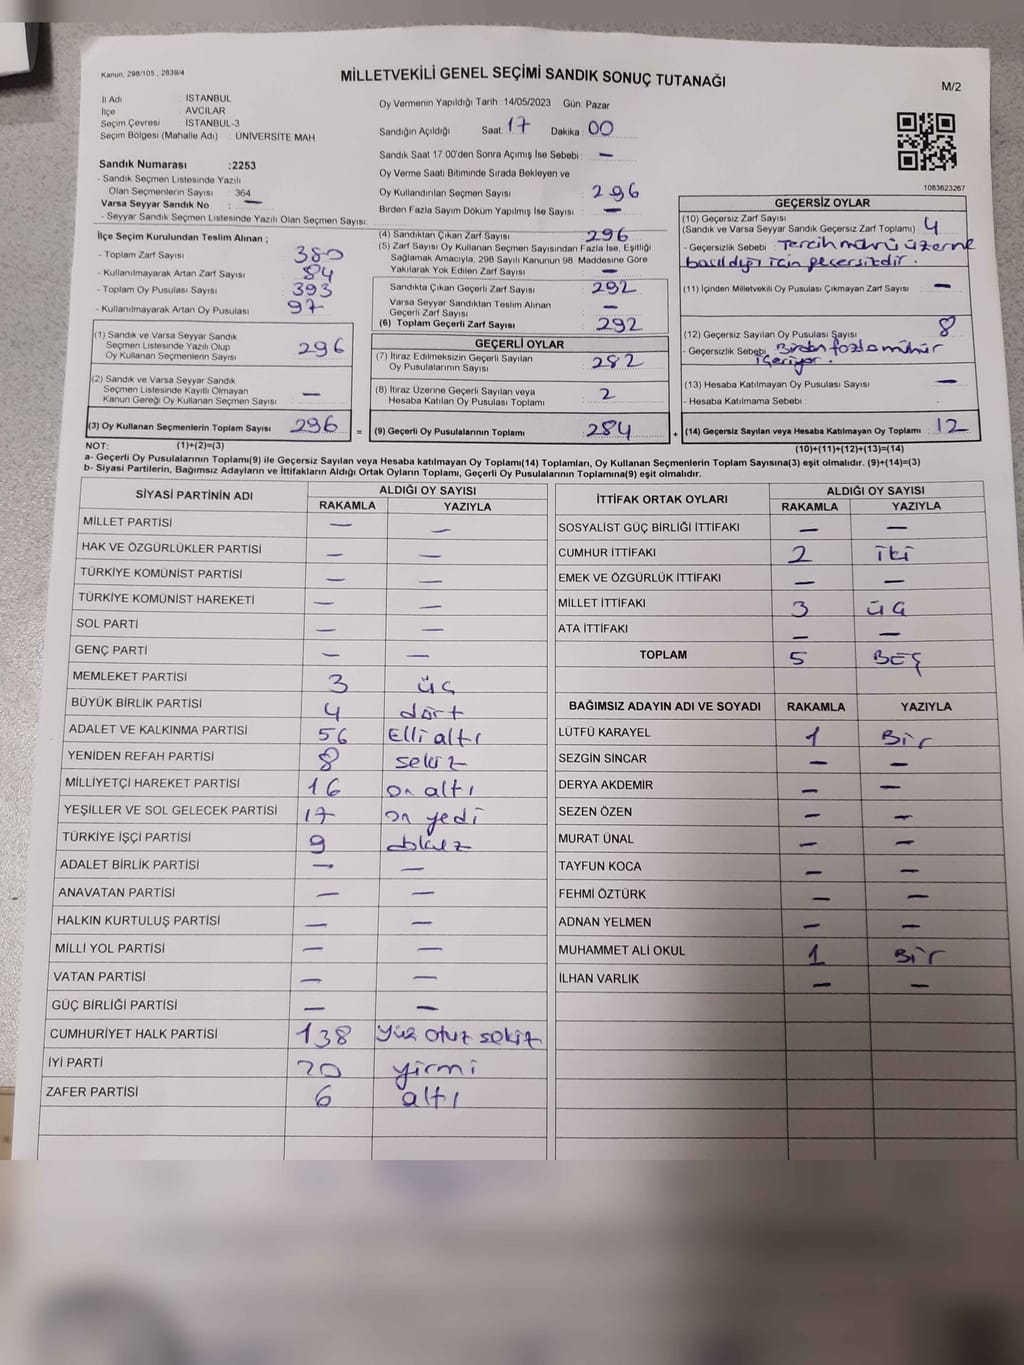 Kanun, 298/105 , 2839/4
MİLLETVEKİLİ GENEL SEÇİMİ SANDIK SONUÇ TUTANAĞI
M/2
İl Adı İSTANBUL
İlçe AVCILAR
Seçim Çevresi İSTANBUL-3
Seçim Bölgesi (Mahalle Adı) : ÜNİVERSİTE MAH.
Sandık Numarası :2253
- Sandık Seçmen Listesinde Yazılı
Olan Seçmenlerin Sayısı 364
Varsa Seyyar Sandık No : —
- Seyyar Sandık Seçmen Listesinde Yazılı Olan Seçmen Sayısı:
Oy Vermenin Yapıldığı Tarih : 14/05/2023 Gün: Pazar
Sandığın Açıldığı Saat: 17 Dakika 00
Sandık Saat 17.00'den Sonra Açımış İse Sebebi : —
Oy Verme Saati Bitiminde Sırada Bekleyen ve
Oy Kullandırılan Seçmen Sayısı 296
Birden Fazla Sayım Döküm Yapılmış İse Sayısı : —
1083623267
İlçe Seçim Kurulundan Teslim Alınan ;
- Toplam Zarf Sayısı : 380
- Kullanılmayarak Artan Zarf Sayısı : 84
- Toplam Oy Pusulası Sayısı : 393
- Kullanılmayarak Artan Oy Pusulası : 97
(1) Sandık ve Varsa Seyyar Sandık
Seçmen Listesinde Yazılı Olup
Oy Kullanan Seçmenlerin Sayısı : 296
(2) Sandık ve Varsa Seyyar Sandık
Seçmen Listesinde Kayıtlı Olmayan
Kanun Gereği Oy Kullanan Seçmen Sayısı : —
(3) Oy Kullanan Seçmenlerin Toplam Sayısı : 296
(4) Sandıktan Çıkan Zarf Sayısı : 296
(5) Zarf Sayısı Oy Kullanan Seçmen Sayısından Fazla İse, Eşitliği
Sağlamak Amacıyla, 298 Sayılı Kanunun 98. Maddesine Göre
Yakılarak Yok Edilen Zarf Sayısı : —
Sandıkta Çıkan Geçerli Zarf Sayısı : 292
Varsa Seyyar Sandıktan Teslim Alınan
Geçerli Zarf Sayısı : —
(6) Toplam Geçerli Zarf Sayısı : 292
GEÇERLİ OYLAR
(7) İtiraz Edilmeksizin Geçerli Sayılan
Oy Pusulalarının Sayısı : 282
(8) İtiraz Üzerine Geçerli Sayılan veya
Hesaba Katılan Oy Pusulası Toplamı : 2
= (9) Geçerli Oy Pusulalarının Toplamı : 284
GEÇERSİZ OYLAR
(10) Geçersiz Zarf Sayısı
(Sandık ve Varsa Seyyar Sandık Geçersiz Zarf Toplamı) : 4
- Geçersizlik Sebebi : Tercih mührü üzerine
basıldığı için geçersizdir.
(11) İçinden Milletvekili Oy Pusulası Çıkmayan Zarf Sayısı : —
(12) Geçersiz Sayılan Oy Pusulası Sayısı : 8
- Geçersizlik Sebebi : Birden fazla mühür
içeriyor.
(13) Hesaba Katılmayan Oy Pusulası Sayısı : —
- Hesaba Katılmama Sebebi :
+ (14) Geçersiz Sayılan veya Hesaba Katılmayan Oy Toplamı : 12
NOT: (1)+(2)=(3)
(10)+(11)+(12)+(13)=(14)
a- Geçerli Oy Pusulalarının Toplamı(9) ile Geçersiz Sayılan veya Hesaba katılmayan Oy Toplamı(14) Toplamları, Oy Kullanan Seçmenlerin Toplam Sayısına(3) eşit olmalıdır. (9)+(14)=(3)
b- Siyasi Partilerin, Bağımsız Adayların ve İttifakların Aldığı Ortak Oyların Toplamı, Geçerli Oy Pusulalarının Toplamına(9) eşit olmalıdır.
SİYASİ PARTİNİN ADI ALDIĞI OY SAYISI
RAKAMLA YAZIYLA
MİLLET PARTİSİ — —
HAK VE ÖZGÜRLÜKLER PARTİSİ — —
TÜRKİYE KOMÜNİST PARTİSİ — —
TÜRKİYE KOMÜNİST HAREKETİ — —
SOL PARTİ — —
GENÇ PARTİ — —
MEMLEKET PARTİSİ 3 üç
BÜYÜK BİRLİK PARTİSİ 4 dört
ADALET VE KALKINMA PARTİSİ 56 Elli altı
YENİDEN REFAH PARTİSİ 8 sekiz
MİLLİYETÇİ HAREKET PARTİSİ 16 on altı
YEŞİLLER VE SOL GELECEK PARTİSİ 17 on yedi
TÜRKİYE İŞÇİ PARTİSİ 9 dokuz
ADALET BİRLİK PARTİSİ — —
ANAVATAN PARTİSİ — —
HALKIN KURTULUŞ PARTİSİ — —
MİLLİ YOL PARTİSİ — —
VATAN PARTİSİ — —
GÜÇ BİRLİĞİ PARTİSİ — —
CUMHURİYET HALK PARTİSİ 138 yüz otuz sekiz
İYİ PARTİ 20 yirmi
ZAFER PARTİSİ 6 altı
İTTİFAK ORTAK OYLARI ALDIĞI OY SAYISI
RAKAMLA YAZIYLA
SOSYALİST GÜÇ BİRLİĞİ İTTİFAKI — —
CUMHUR İTTİFAKI 2 iki
EMEK VE ÖZGÜRLÜK İTTİFAKI — —
MİLLET İTTİFAKI 3 üç
ATA İTTİFAKI — —
TOPLAM 5 BEŞ
BAĞIMSIZ ADAYIN ADI VE SOYADI RAKAMLA YAZIYLA
LÜTFÜ KARAYEL 1 Bir
SEZGİN SİNCAR — —
DERYA AKDEMİR — —
SEZEN ÖZEN — —
MURAT ÜNAL — —
TAYFUN KOCA — —
FEHMİ ÖZTÜRK — —
ADNAN YELMEN — —
MUHAMMET ALİ OKUL 1 Bir
İLHAN VARLIK — —